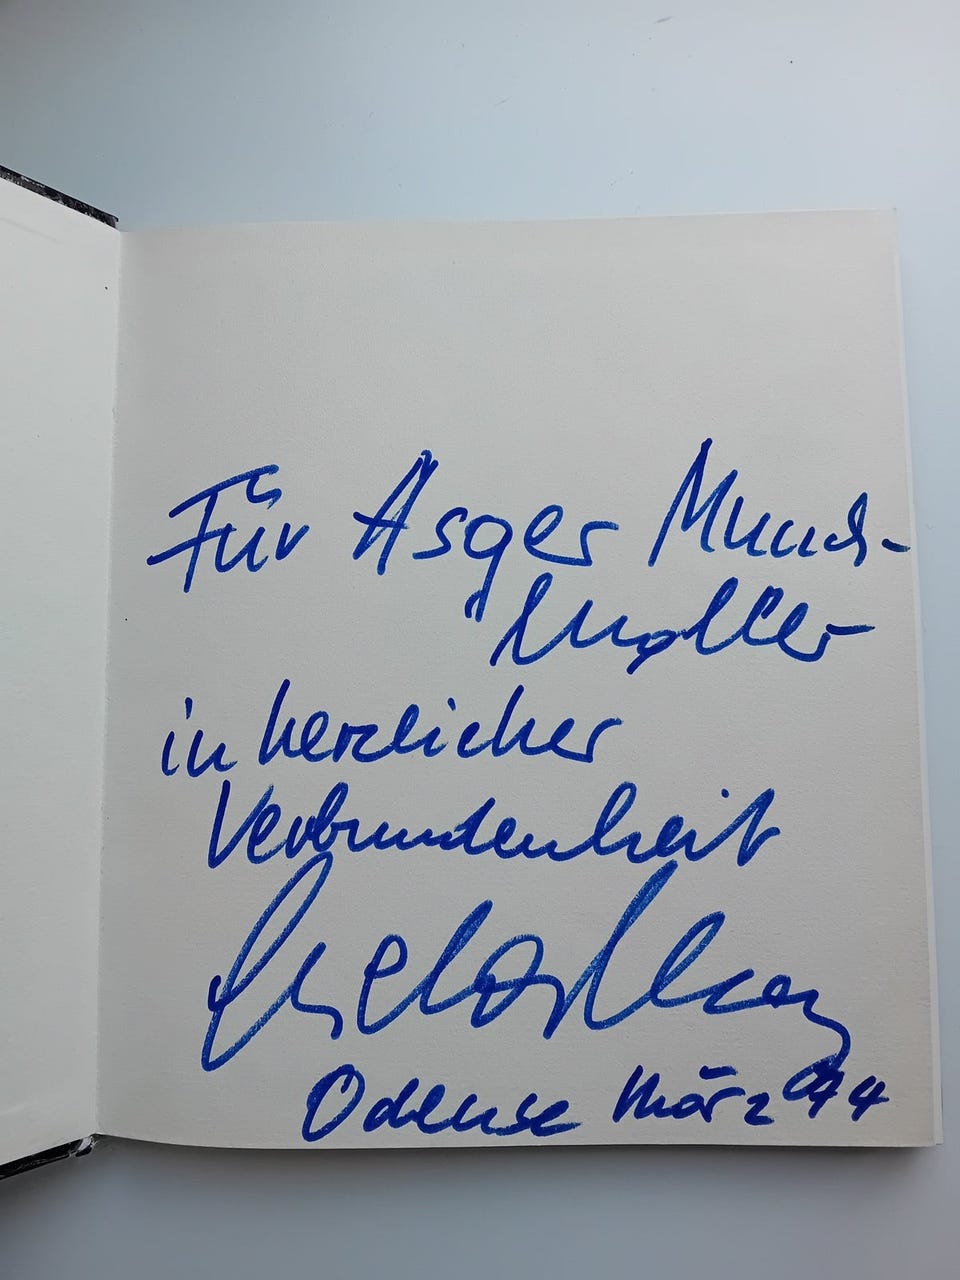 Für Asger Munch-
Møller
in herzlicher
Verbundenheit
Odense März 94